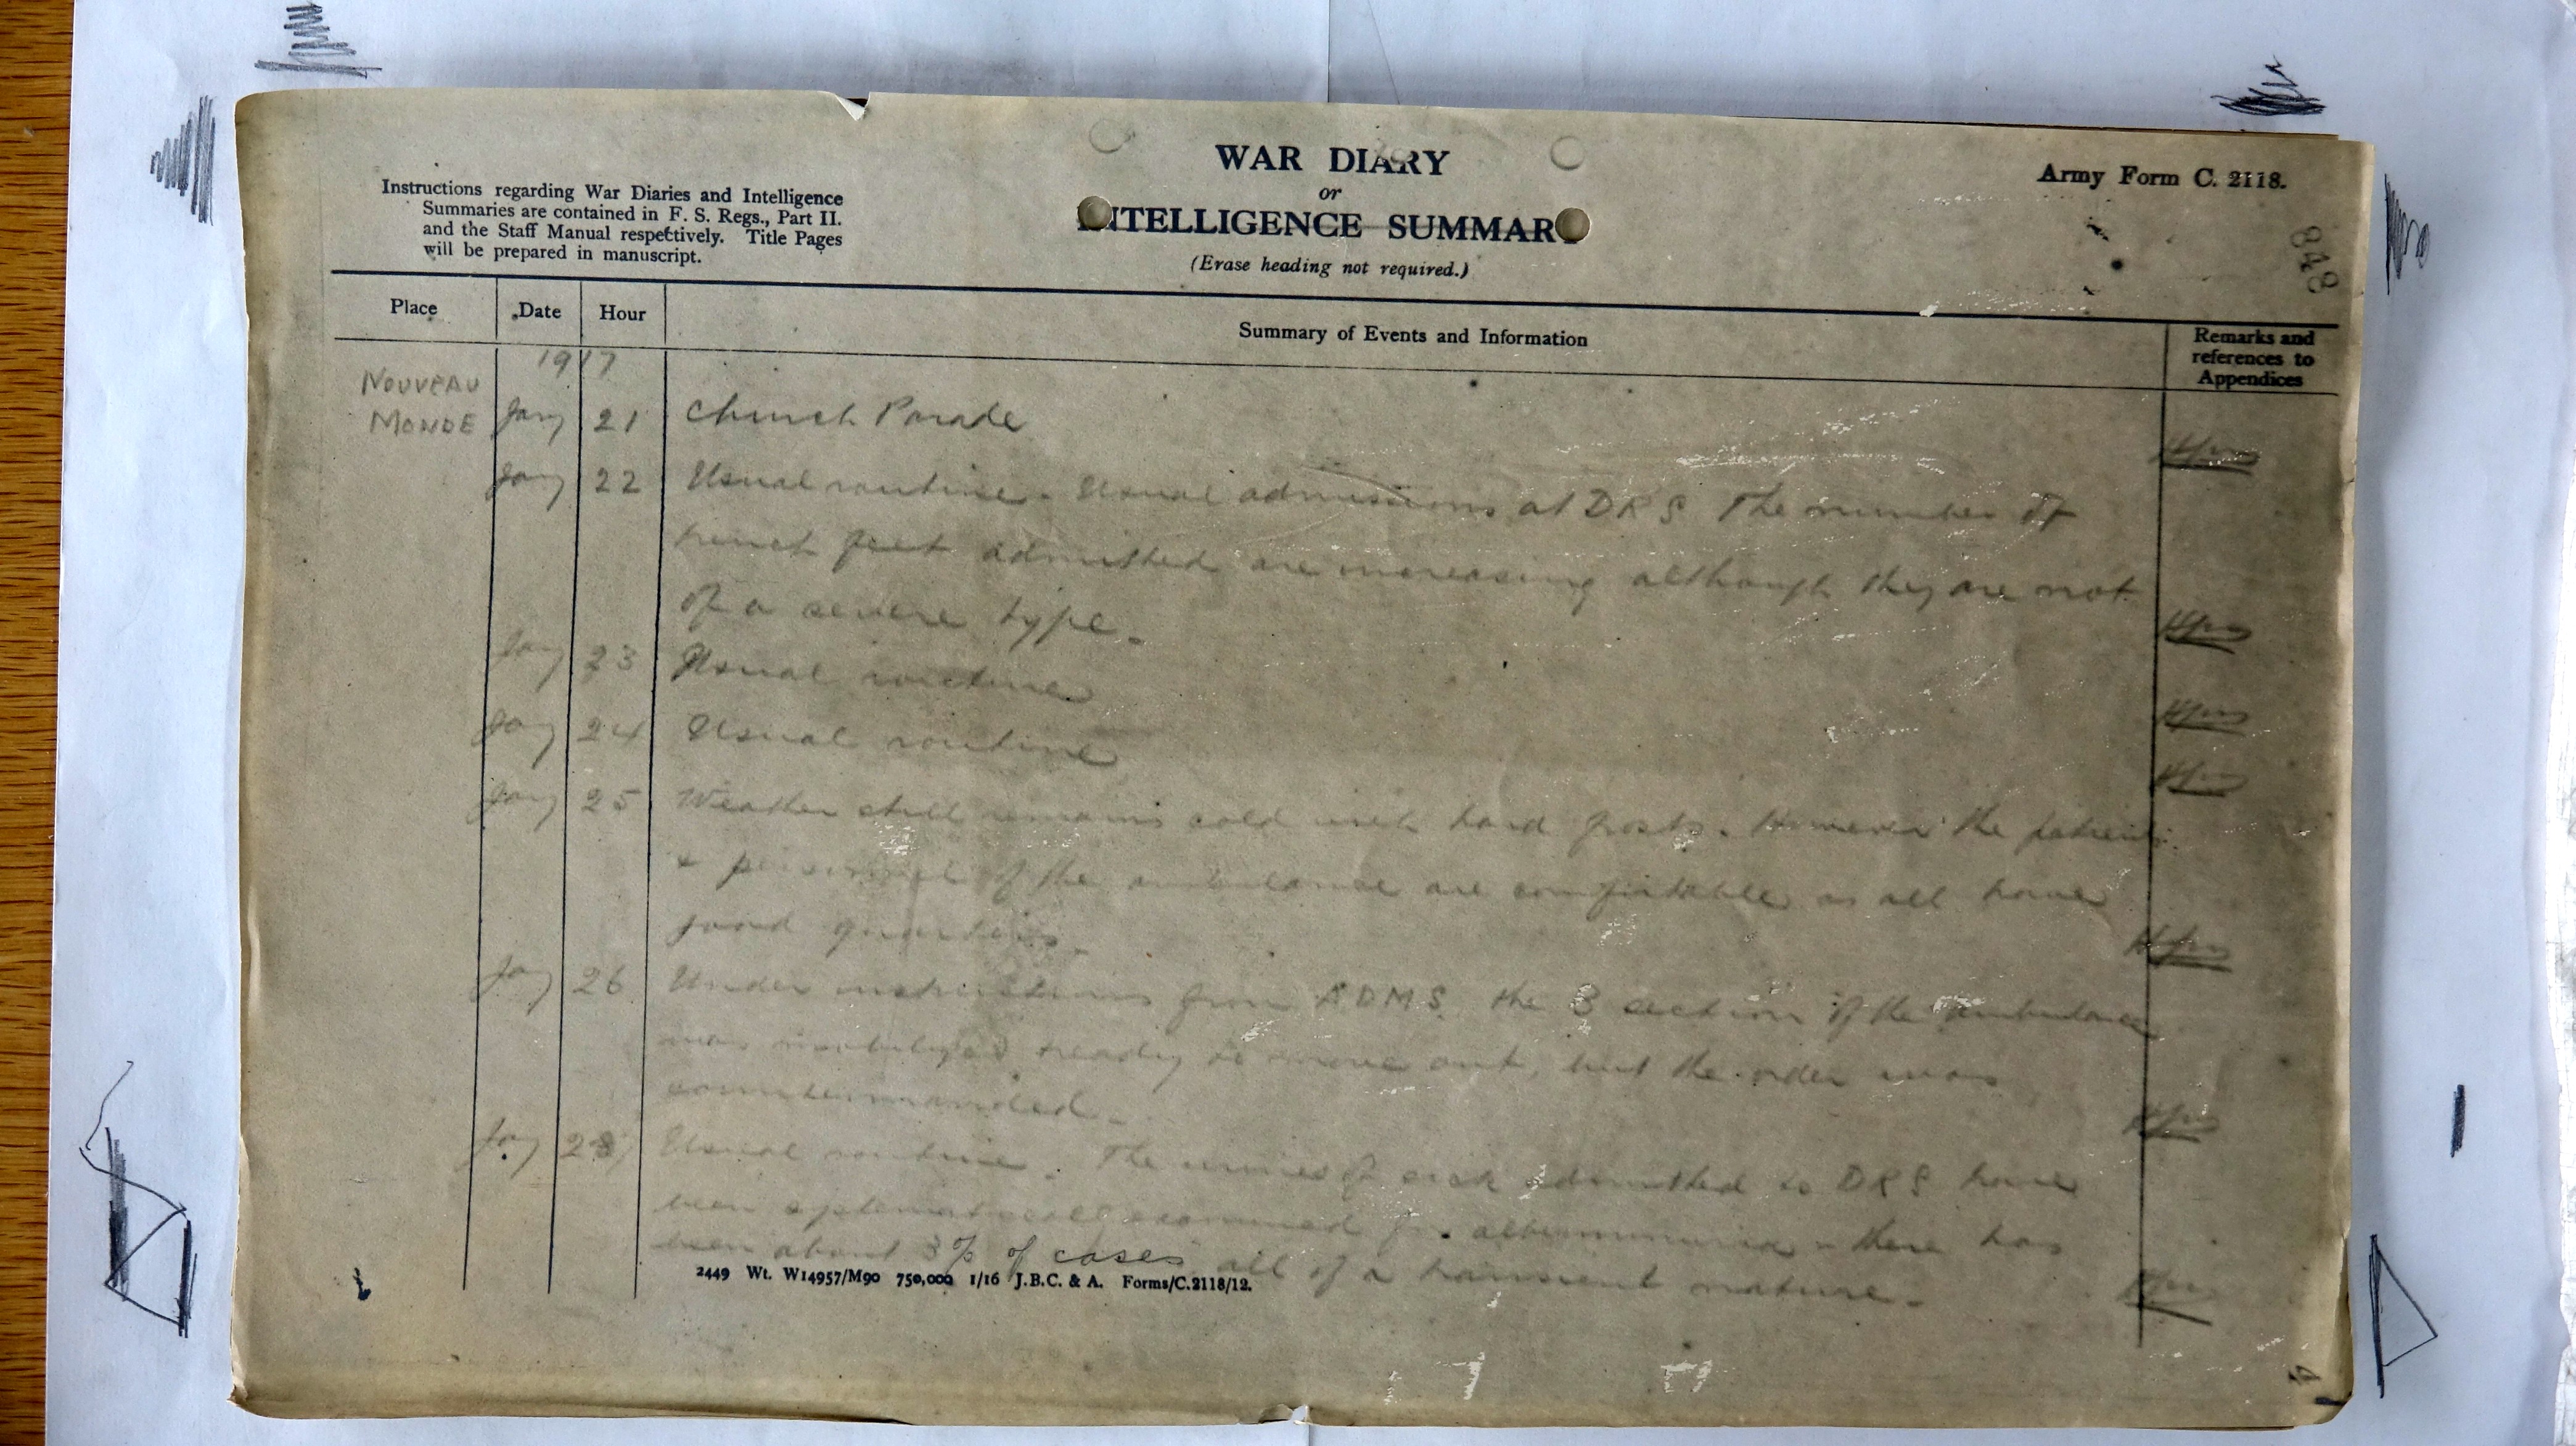 Instructions regarding War Diaries and Intelligence
Summaries are contained in F. S. Regs., Part II.
and the Staff Manual respectively. Title Pages
will be prepared in manuscript.
WAR DIARY
or
INTELLIGENCE SUMMARY
(Erase heading not required.)
Army Form C. 2118.
848
Place Date Hour Summary of Events and Information Remarks and
references to
Appendices
1917
NOUVEAU
MONDE Jany 21 Church Parade
Jany 22 Usual routine. Usual admissions at DRS The number of
trench feet admitted are increasing although they are not
of a severe type.
Jany 23 Usual routine
Jany 24 Usual routine
Jany 25 Weather still remains cold with hard frosts. However the patients
+ personnel of the ambulance are comfortable as all have
good quarters.
Jany 26 Under instructions from ADMS the B section of the ambulance
was mobilized ready to move out, but the order was
countermanded.
Jany Usual routine. The urines of sick admitted to DRS have
been systematically examined for albuminuria & there has
been about 3% of cases all of a transient nature.
2449 Wt. W14957/M90 750,000 1/16 J.B.C. & A. Forms/C.2118/12.